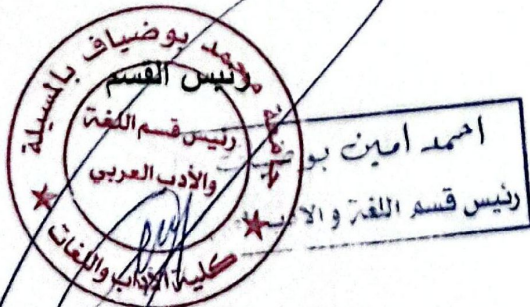 رئيس القسم
جامعة محمد بوضياف بالمسيلة
رئيس قسم اللغة
والأدب العربي
كلية الآداب واللغات
احمد امين بو
رئيس قسم اللغة و الا